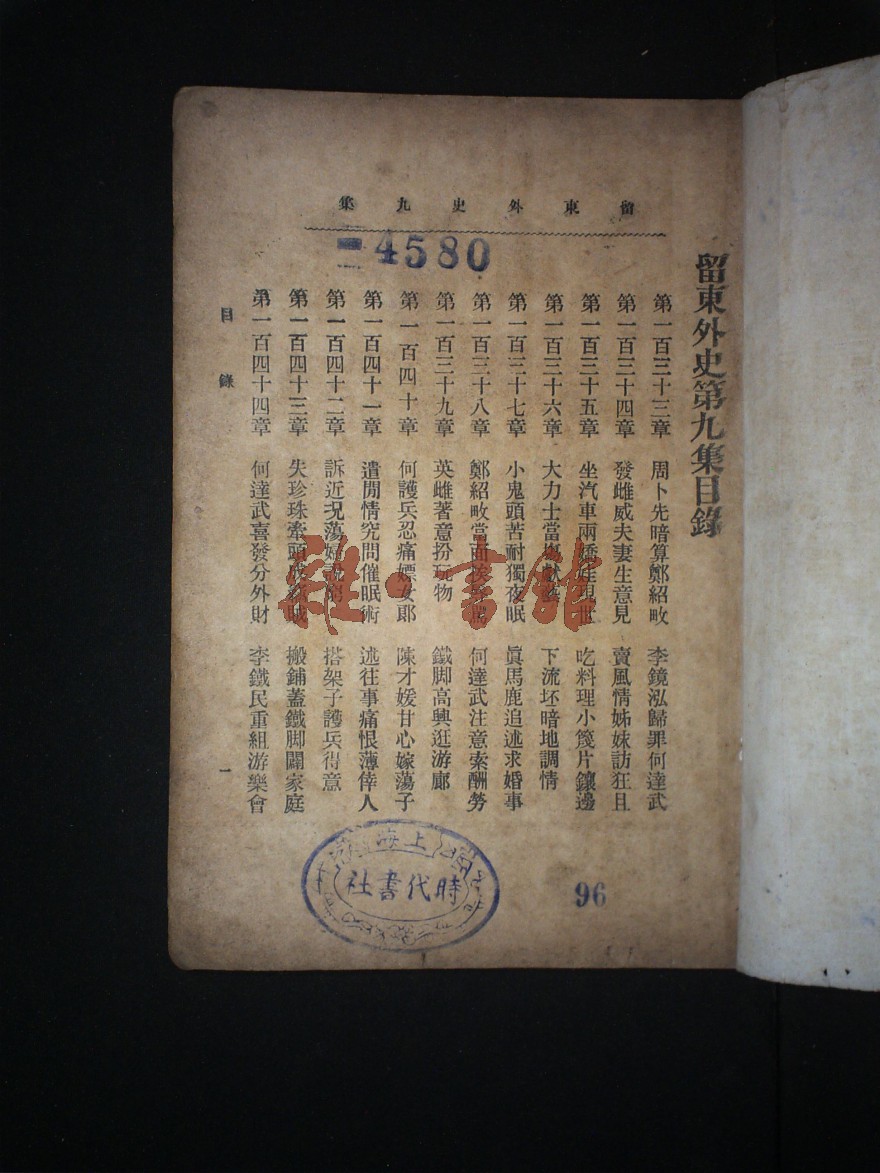 留東外史九集
4580
留東外史第九集目錄
第一百三十三章 周卜先暗算鄭紹畋 李鏡泓歸罪何達武
第一百三十四章 發雌威夫妻生意見 賣風情姊妹訪狂且
第一百三十五章 坐汽車兩嬌娃現世 吃料理小篾片鑲邊
第一百三十六章 大力士當 下流坯暗地調情
第一百三十七章 小鬼頭苦耐獨夜眠 眞馬鹿追述求婚事
第一百三十八章 鄭紹畋當面挨 何達武注意索酬勞
第一百三十九章 英雌著意扮玩物 鐵脚高興逛游廊
第一百四十章 何護兵忍痛嫖女郞 陳才媛甘心嫁蕩子
第一百四十一章 遣閒情究問催眠術 述往事痛恨薄倖人
第一百四十二章 訴近況蕩婦說窮 搭架子護兵得意
第一百四十三章 失珍珠牽頭成 賊 搬鋪蓋鐵脚鬧家庭
第一百四十四章 何達武喜發分外財 李鐵民重組游樂會
目錄 一
雜書館
上海
時代書社
96